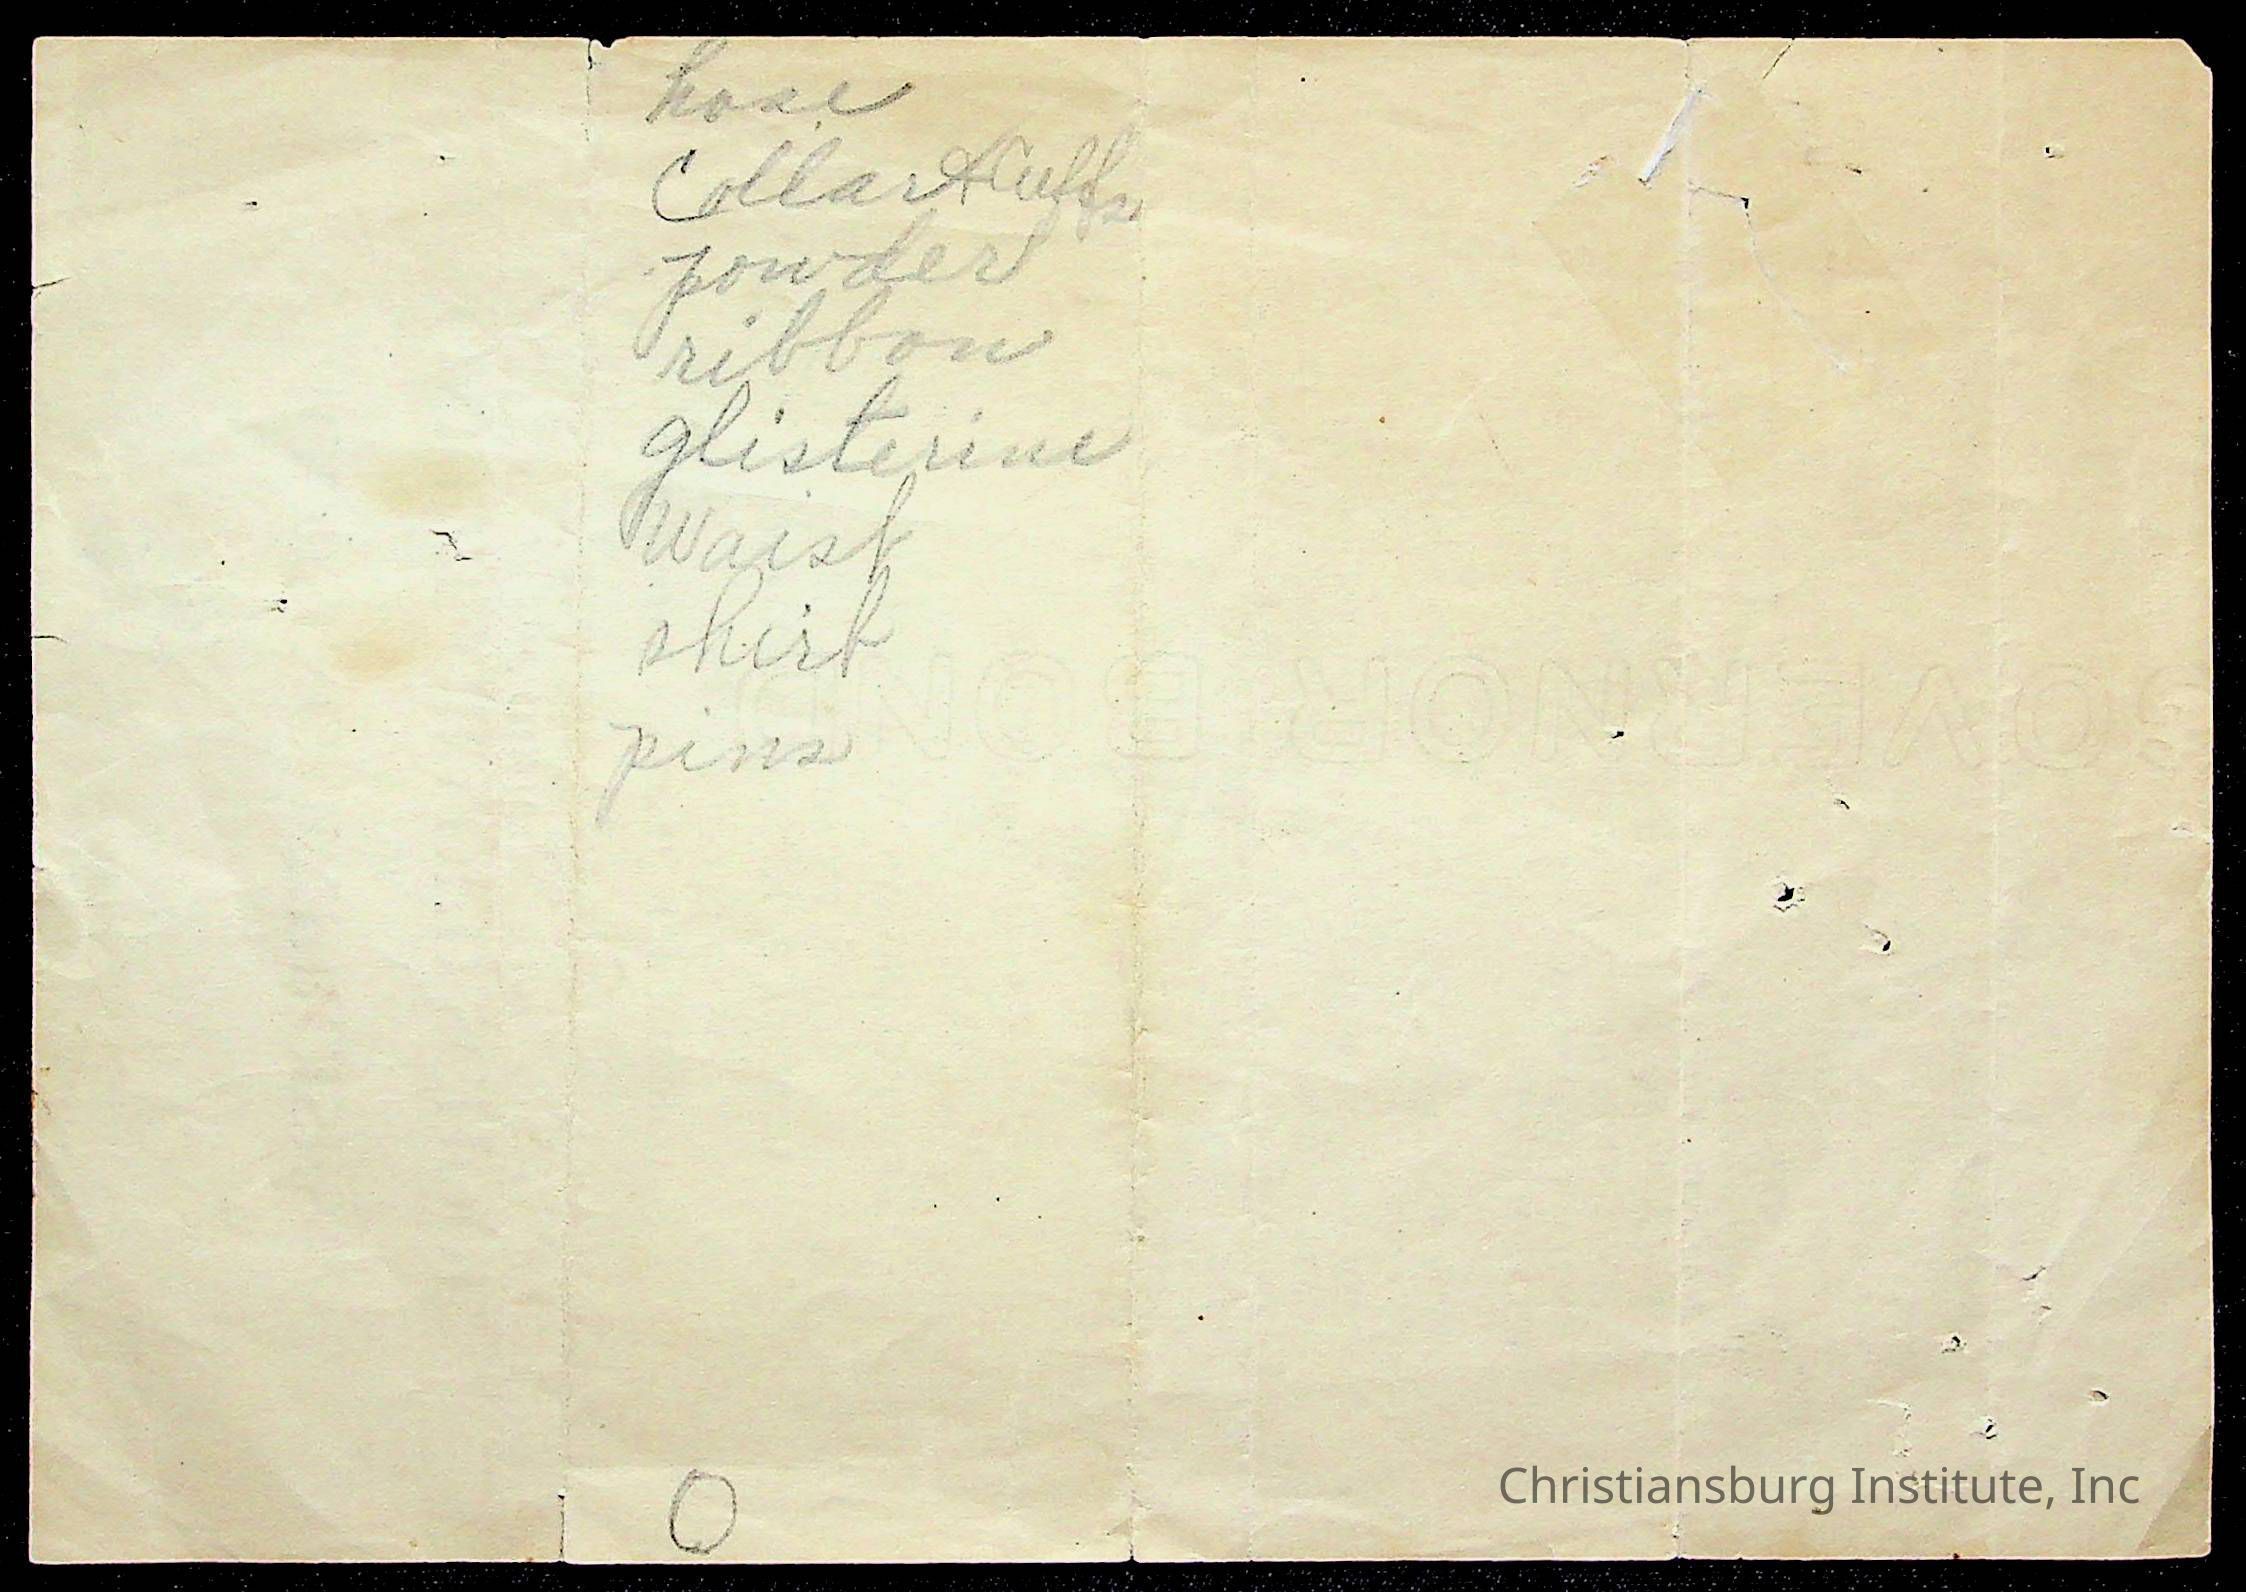 hose
Collar & Cuffs
powder
ribbon
glisterine
Waist
shirt
pins
GOVERNOR BOND
O
Christiansburg Institute, Inc